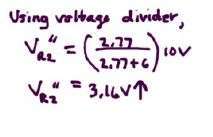 Using voltage divider,
V_{R2}'' = (2.77 / 2.77+6) 10V
V_{R2}'' = 3.16V↑